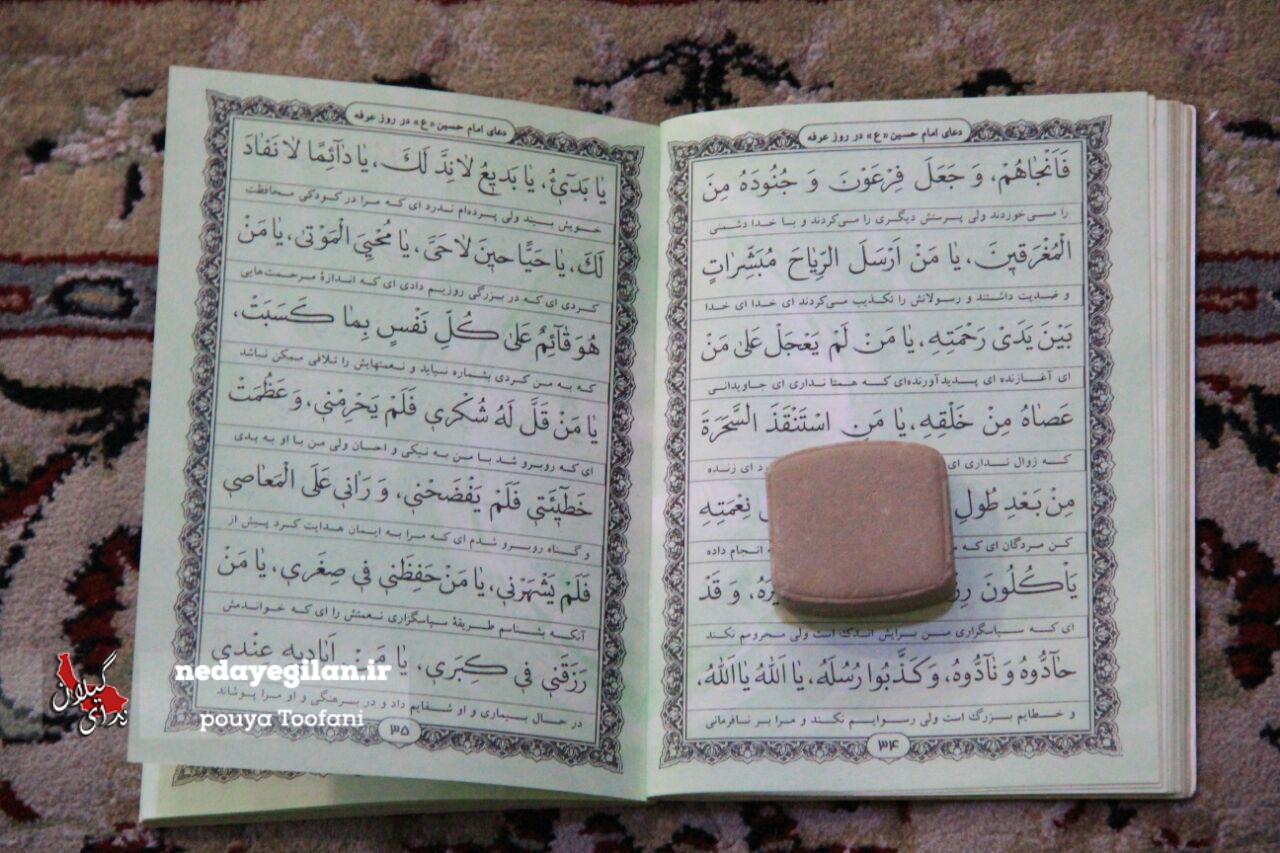 دعای امام حسین «ع» در روز عرفه
فَاَنْجٰاهُمْ، وَ جَعَلَ فِرْعَوْنَ وَ جُنُودَهُ مِنَ
را می‌خوردند ولی پرستش دیگری را می‌کردند و با خدا دشمنی
الْمُغْرَقینَ، یٰا مَنْ اَرْسَلَ الرِّیٰاحَ مُبَشِّرٰاتٍ
و ضدیت داشتند و رسولانش را تکذیب می‌کردند ای خدا ای خدا
بَیْنَ یَدَیْ رَحْمَتِهِ، یٰا مَنْ لَمْ یَعْجَلْ عَلیٰ مَنْ
ای آغازنده ای پدیدآورنده‌ای که همتا نداری ای جاویدانی
عَصٰاهُ مِنْ خَلْقِهِ، یٰا مَنِ اسْتَنْقَذَ السَّحَرَةَ
که زوال نداری ای ای زنده
مِنْ بَعْدِ طُولِ نِعْمَتِهِ
کن مردگان ای که انجام داده
یَاْکُلُونَ وَ قَدْ
ای که سپاسگزاری من برایش اندک است ولی محرومم نکند
حٰادُّوهُ وَ نٰادُّوهُ، وَ کَذَّبُوا رُسُلَهُ، یٰا اَللّٰهُ یٰا اَللّٰهُ،
و خطایم بزرگ است ولی رسوایم نکند و مرا بر نافرمانی
۳۴
دعای امام حسین «ع» در روز عرفه
یٰا بَدٓیُٔ، یٰا بَدیعُ لاٰ نِدَّ لَکَ، یٰا دٰآئِمًا لاٰ نَفٰادَ
خویش بیند ولی پرده‌ام ندرد ای که مرا در کودکی محافظت
لَکَ، یٰا حَیًّا حینَ لاٰ حَیَّ، یٰا مُحْیِیَ الْمَوْتیٰ، یٰا مَنْ
کردی ای که در بزرگی روزیم دادی ای که اندازهٔ مرحمت‌هایی
هُوَ قٰآئِمٌ عَلیٰ کُلِّ نَفْسٍ بِمٰا کَسَبَتْ،
که به من کردی بشماره نیاید و نعمتهایش را تلافی ممکن نباشد
یٰا مَنْ قَلَّ لَهُ شُکْری فَلَمْ یَحْرِمْنی، وَ عَظُمَتْ
ای که روبرو شد با من به نیکی و احسان ولی من با او به بدی
خَطٓیئَتی فَلَمْ یَفْضَحْنی، وَ رَاٰنی عَلَی الْمَعٰاصی
و گناه روبرو شدم ای که مرا به ایمان هدایت کرد پیش از
فَلَمْ یَشْهَرْنی، یٰا مَنْ حَفِظَنی فی صِغَری، یٰا مَنْ
آنکه بشناسم طریقهٔ سپاسگزاری نعمتش را ای که خواندمش
رَزَقَنی فی کِبَری، یٰا مَنْ اَیٰادیهِ عِنْدی
در حال بیماری و او شفایم داد و در برهنگی و او مرا پوشاند
۳۵
ندای گیلان
nedayegilan.ir
pouya Toofani